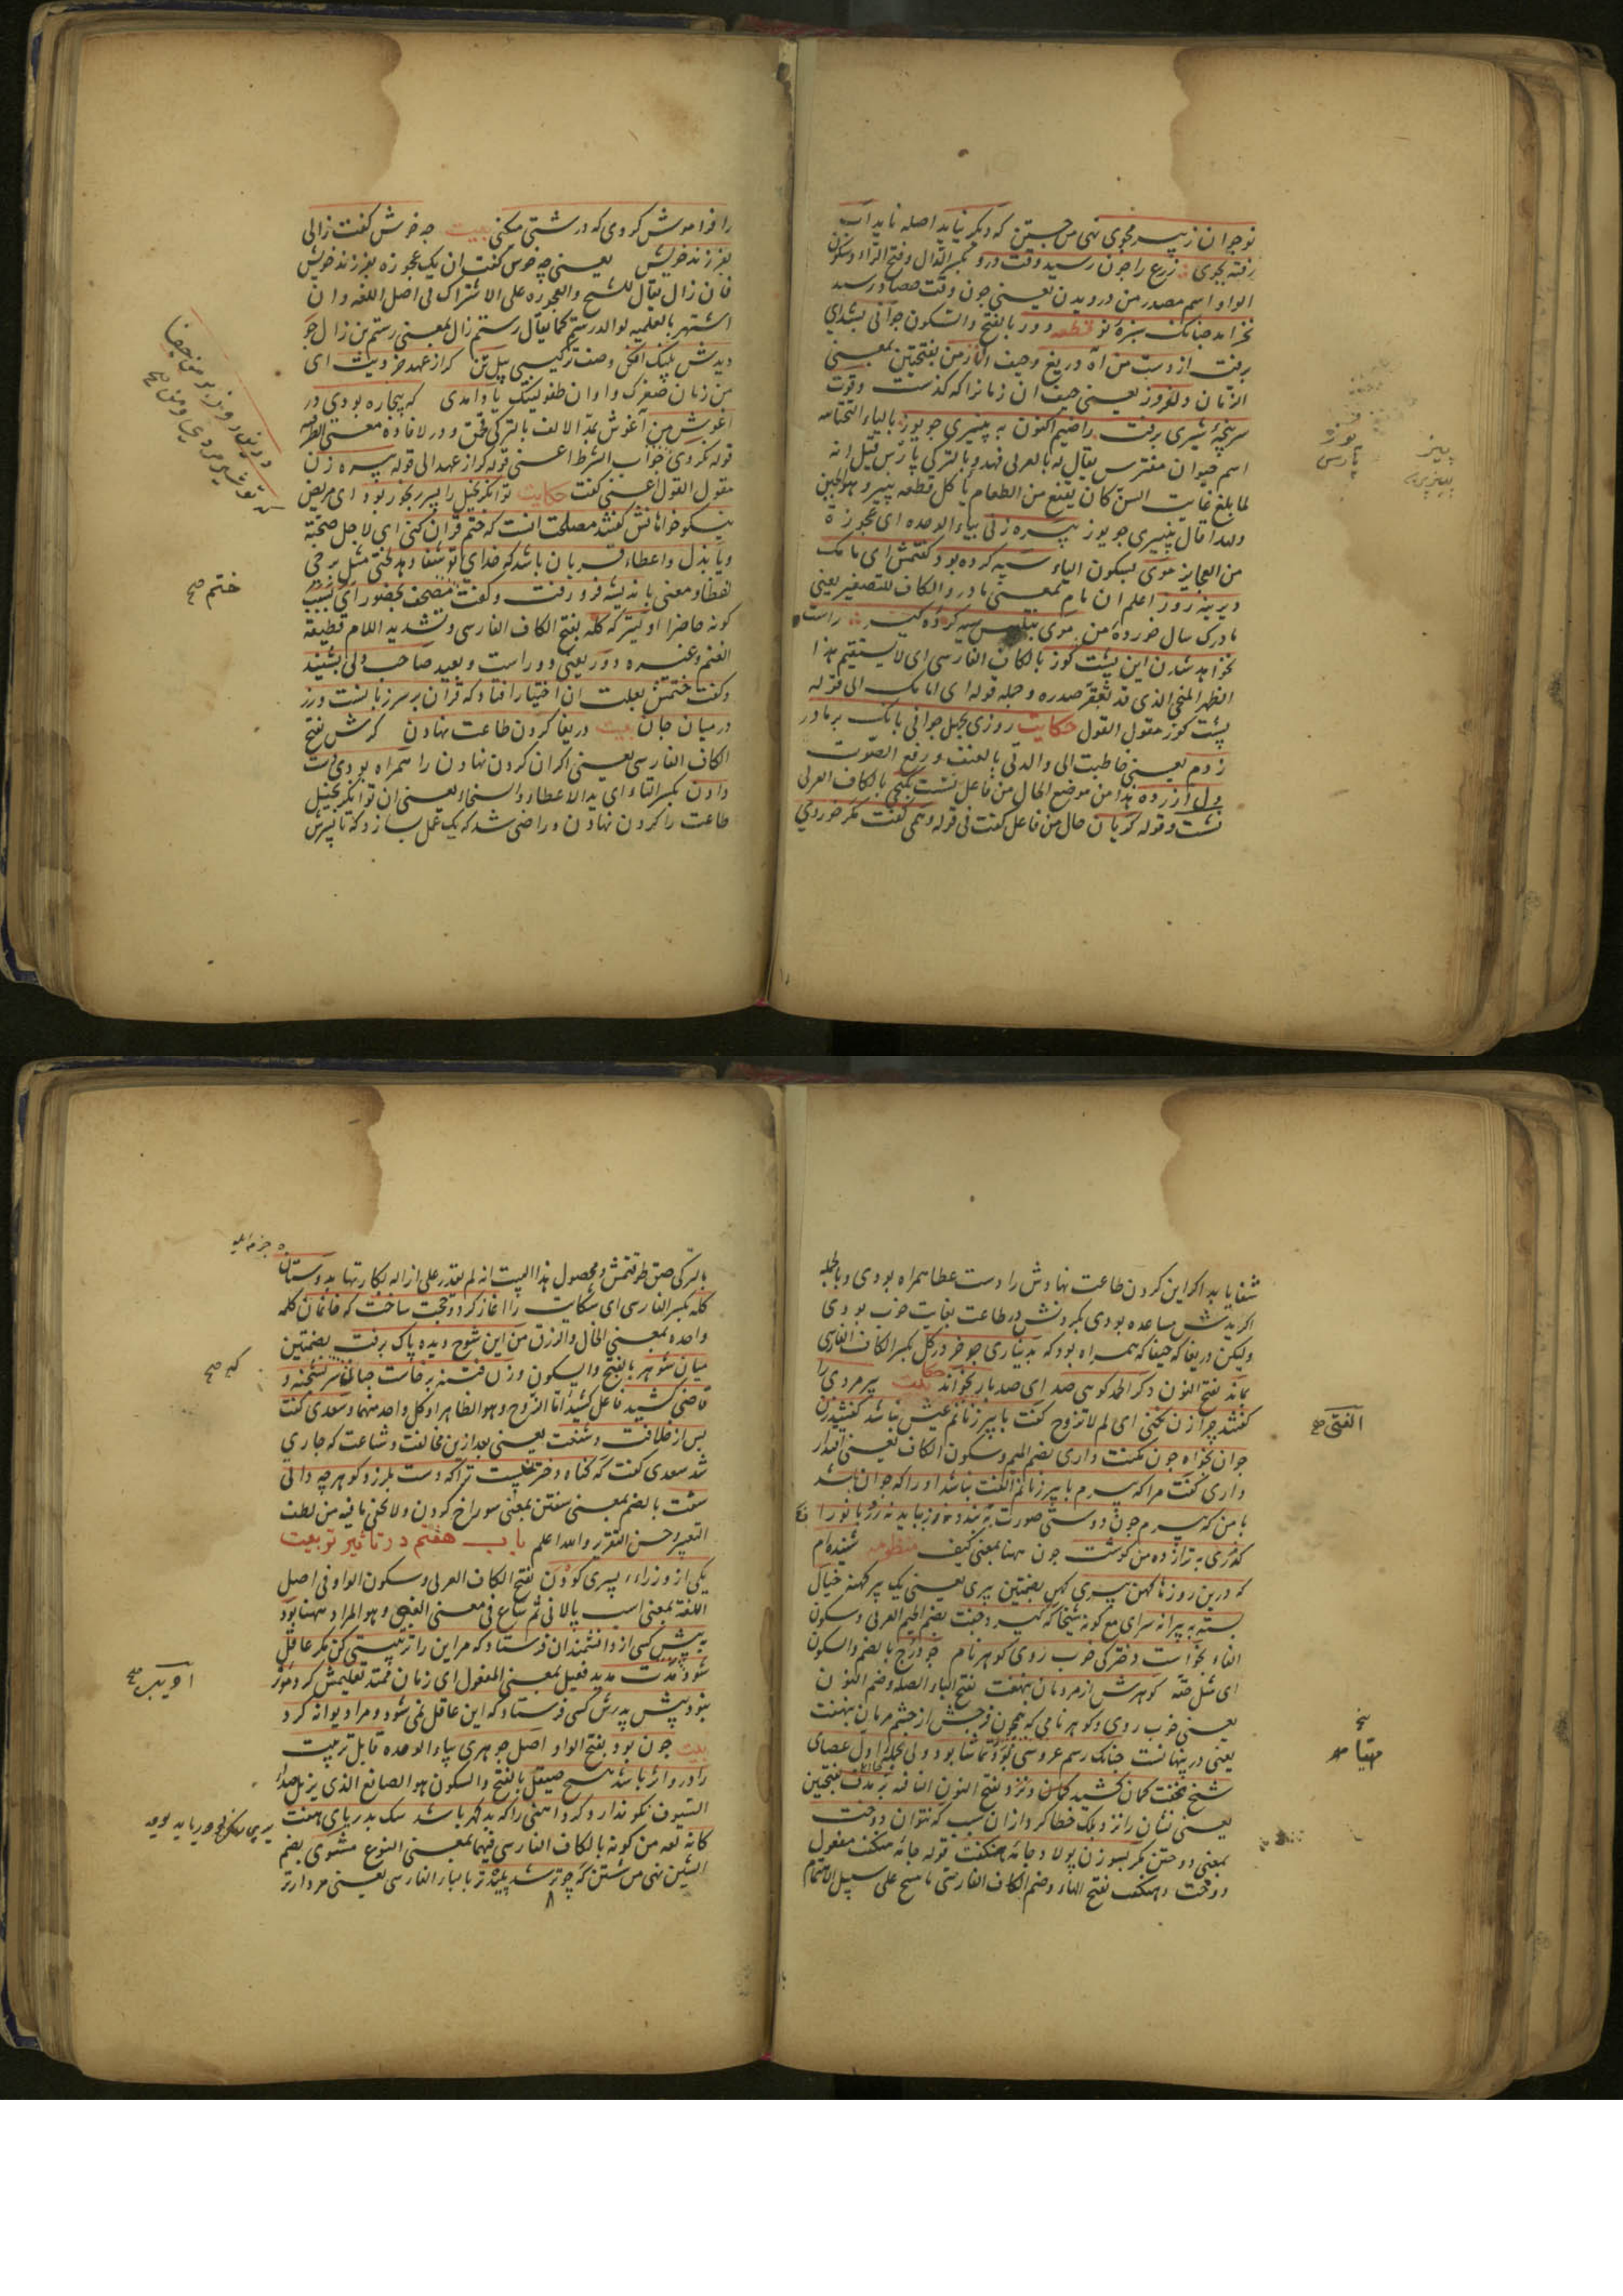 نوجوان ز پیر مجوی نهی من جستن که دیگر نیاید اصله ناید آب
رفته بجوی زرع را چون رسید وقت درو بکسر الدال و فتح الراء و سکون
الواو اسم مصدر من درویدن یعنی چون وقت حصاد رسید
نخرامد چنانک سبزهٔ نو قطعه دور بالفتح والسکون جوانی بشد ای
برفت از دست من آه و دریغ وحیف آن زمن بفتحتین بمعنی
الزمان دلفروز یعنی حیف آن زمانرا که گذشت وقوت
سرپنجهٔ شیری برفت راضیم اکنون به پنیری چو یوز بالیاء التحتانیه
اسم حیوان مفترس یقال له بالعربی فهد و بالترکی پارس قیل انه
لما بلغ غایت السن کان یقنع من الطعام باکل قطعه پنیر وهو الجبن
ولهذا قال پنیری چو یوز پیره زنی بیاء الوحده ای عجوزة
من العجایز موی بسکون الیاء سیه کرده بود گفتمش ای مامک
دیرینه روز اعلم ان مام بمعنی مادر و الکاف للتصغیر یعنی
مادرک سال خورده من موی بتلبیس سیه کرده گیر راست
نخواهد شدن این پشت کوز بالکاف الفارسی ای لا یستقیم هذا
الظهر المنحنی الذی قد تقعر صدره و جمله قوله ای مامک الی قوله
پشت کوز مقول القول حکایت روزی بجهل جوانی بانک بر مادر
زدم یعنی خاطبت الی والدتی بالعنف و رفع الصوت
دل آزرده هذا من موضع الحال من فاعل نشست بکنجی بالکاف العربی
نشست و قوله گریان حال من فاعل گفت فی قوله و همی گفت مگر خوردی
را فراموش کردی که درشتی میکنی بیت چه خوش گفت زالی
بفرزند خویش یعنی چه خوش گفت آن یک عجوزه بفرزند خویش
فان زال یقال للشیخ والعجوزه علی الاشتراک فی اصل اللغه وان
اشتهر بالعلمیه لوالد رستم کما یقال رستم زال بمعنی رستم بن زال چو
دیدش پلنک افکن وصف ترکیبی پیل تن کر از عهد خردیت ای
من زمان صغرک و اوان طفولیتک یاد آمدی که بیچاره بودی در
آغوش من آغوش بمد الالف بالترکی قوجق و در لافاده معنی الظرفیه
قوله نکردی جواب الشرط اعنی قوله کر از عهد الی قوله پیره زن
مقول القول اعنی گفت حکایت توانگر بخیل را پسر رنجور بود ای مریض
نیکوخواهانش گفتند مصلحت آنست که ختم قرآن کنی ای لاجل صحته
ویا بذل واعطاء قربان باشد که خدای تو شفا دهد
لفظا و معنی باندیشه فرو رفت و گفت مصحف بحضور ای بسبب
کونه حاضرا اولیتر که گله بفتح الکاف الفارسی و تشدید اللام قطیعة
الغنم وغیره دور یعنی دوراست و بعید صاحب دلی بشنید
و گفت ختمش بعلت آن اختیار افتاد که قرآن بر سر زبانست و زر
در میان جان بیت دریغا گردن طاعت نهادن گرش بفتح
الکاف الفارسی یعنی اگر آن گردن نهادن را همراه بودی دست
دادن بکسر التاء ای ید الاعطاء والسخاء یعنی آن توانگر بخیل
طاعت را گردن نهادن و راضی شد که یک عمل سازد که تا پسرش
ختم صح
شفا یابد اگر این گردن طاعت نهادش را دست عطا همراه بودی و بالجمله
اگر یدش مساعده بودی بگردنش در طاعت بغایت خوب بودی
ولیکن دریغا که حیفا که همراه بود که بدیناری چو خر در گل بکسر الکاف الفارسی
بماند بفتح النون و گر الحمد گویی صد ای صد بار بخواند حکایت پیرمردی را
گفتند چرا زن نکنی ای لم لا تزوج گفت با پیر زنانم عیش نباشد گفتندش
جوان بخواه چون مکنت داری بضم المیم و سکون الکاف یعنی اقتدار
داری گفت مرا که پیرم با پیر زنانم الفت نباشد اورا که جوان باشد
با من که پیرم چون دوستی صورت بندد زور باید نه زر بانو را
گزری به ز از ده من گوشت چون مهنا بمعنی کیف منظومه شنیده‌ام
که درین روزها کهن پیری کهن بضمتین پیری یعنی یک پیر کهنه خیال
بست به پیرانه سرای مع کونه شیخا که گیرد جفت بضم الجیم العربی و سکون
الفاء بخواست دخترکی خوب روی گوهر نام چو درج بالضم والسکون
ای مثل حقه گوهرش از مردمان بنهفت بفتح الباء الصله وضم النون
یعنی خوب روی و گوهر نامی که همچون درجش از چشم مردمان بنهفت
یعنی در پنهانست چنانک رسم عروسی بود تماشا بود ولی بحمله اول عصای
شیخ بخفت کمان کشید و نزد بفتح النون النافیه بر هدف بفتحتین
یعنی نشان را نزد بلک خطا کرد از آن سبب که نتوان دوخت
بمعنی دوختن مگر بسوزن پولاد جامهٔ هنکفت قوله جامه هنکفت مفعول
دوخت و هنکفت بفتح الهاء وضم الکاف الفارسی
الفتی صح
مهیا صح
بالترکی صق طوقنمش و محصول هذا البیت انه لم یقدر علی ازاله بکارتها بدوستان
گله بکسر الفارسی ای شکایت را آغاز کرد و حجت ساخت که خانمان کلمه
واحده بمعنی الحال والرزق من این شوخ دیده پاک برفت بضمتین
میان شوهر بالفتح والسکون و زن فتنه برخاست چنانکه سر بشحنه و
قاضی کشید فاعل کشید اما الزوج وهو الظاهر او کل واحد منهما و سعدی گفت
پس از خلافت و شنعت یعنی بعد ازین مخالفت و شناعت که جاری
شد سعدی گفت که گناه دختر نیست ترا که دست بلرزد گوهر چه دانی
سفت بالضم بمعنی سفتن بمعنی سوراخ کردن ولا یخفی ما فیه من لطف
التعبیر و حسن التقریر والله اعلم باب هفتم در تأثیر تربیت
یکی از وزراء پسری کودن بفتح الکاف العربی و سکون الواو فی اصل
اللغة بمعنی اسب پالانی ثم شاع فی معنی الغبی وهو المراد مهنا بود
به پیش کسی از دانشمندان فرستاد که مر این را تربیتی کن مگر عاقل
شود مدت مدید فعیل بمعنی المفعول ای زمان ممتد تعلیمش کرد مؤثر
نبود پیش پدرش کسی فرستاد که این عاقل نمی شود و مرا دیوانه کرد
بیت چون بود بفتح الواو اصل جوهری بیاء الوحده قابل تربیت
را در و اثر باشد هیچ صیقل بالفتح والسکون هو الصانع الذی یزیل صداء
السیوف نکو نداند کرد آهنی را که بد گهر باشد سک بدریای هفت
کانه لعه من کونه بالکاف الفارسی فیهما بمعنی النوع مشوی بضم
الشین نهی من شستن که چو تر شد پلیدتر بالباء الفارسی یعنی مردارتر
که صح